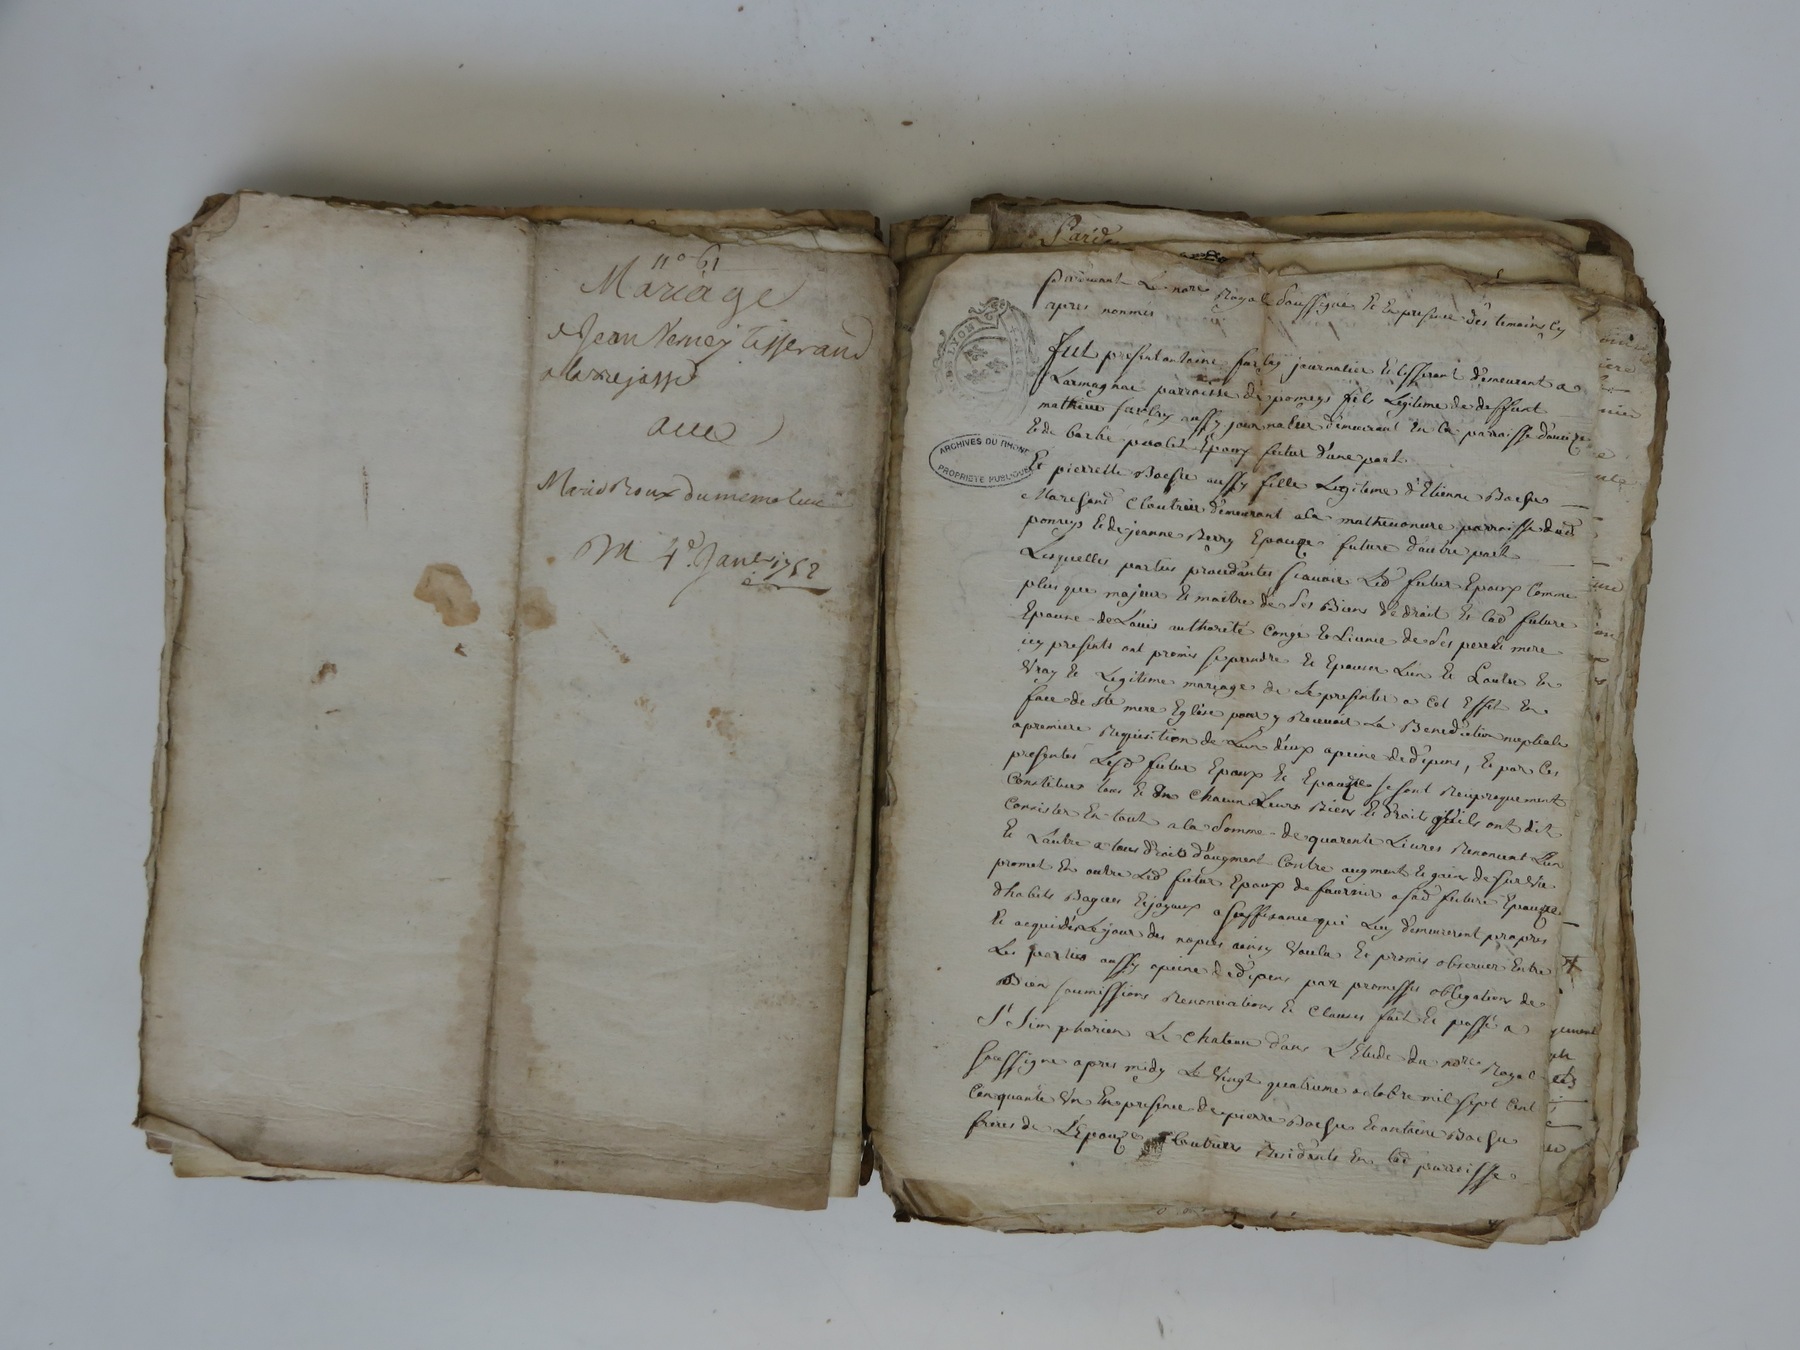 n° 61
Mariage
de Jean Verney tisserand
a Larrejasse
avec
Marie Roux du meme lieu
M 4e Janer 1752
Pardt
LYON
ARCHIVES DU RHONE
PROPRIETE PUBLIQUE
Pardevant Le nore Royal soussigné Et En presence des temoins cy
apres nommes
fut present antoine farley journalier Et tisserant demeurant a
Larmagnac parroisse de pomeys fils Legitime de deffunt
mathieu farley aussy journalier demeurant En la parroisse d'aveize
Et de barbe perolet Epoux futur d'une part
Et pierrette Bachu aussy fille Legitime d'Etienne Bachu
Marchand Cloutrier demeurant a la mathevonnre parroisse dud
pomeys Et de jeanne Berry Epouze future d'autre part
Lesquelles parties procedantes scavoir Led futur Epoux Comme
plus que majeur Et maitre de ses Biens Et droit Et lad future
Epouse de L'avis authorité Congé Et Licence de ses pere Et mere
icy presents ont promis se prendre Et Epouser L'un Et L'autre En
vray Et Legitime mariage Et se presenter a Cet Effet En
face de Ste mere Eglise pour y Recevoir La Benediction nuptiale
a premiere Requisition de L'un d'eux a peine de depens, Et par Ces
presentes Lesd futur Epoux Et Epouze se sont Reciproquement
Constitues tous Et Un Chacun Leurs Biens Et droits qu'ils ont dit
Consister En tout a la somme de quarente Livres Renoncent L'un
Et L'autre a tous droits d'augment Contre augment Et gain de survie
promet En outre Led futur Epoux de fournir a sad future Epouze
d'habits Bagues Et joyaux a suffisance qui Luy demeureront propres
Et acquis des Le jour des nopces ainsy voulu Et promis observer Entre
Les parties aussy a peine de depens par promesses obligation de
Bien soumissions Renonciations Et Clauses fait Et passé a
St Simphorien Le Chateau dans L'Etude du nore Royal
soussigné apres midy Le vingt quatrieme octobre mil sept Cent
Cinquante Un En presence de pierre Bachu Et antoine Bachu
freres de L'Epouze Cloutiers Residants En lad parroisse